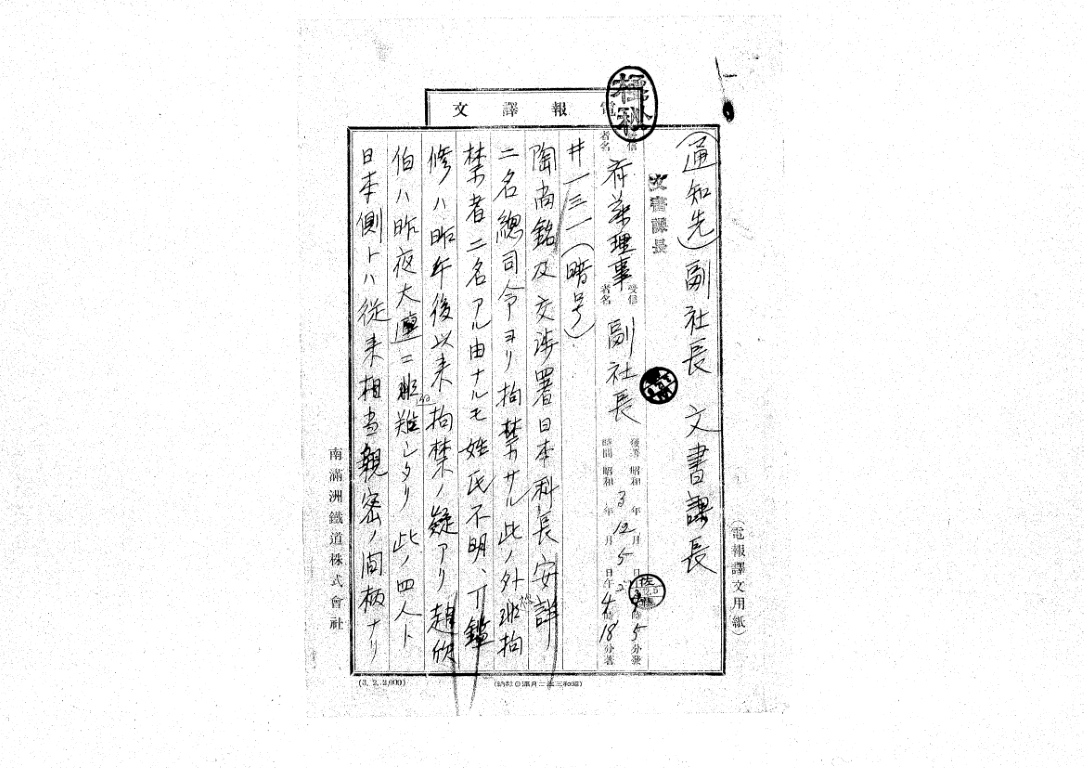 電報譯文
(電報譯文用紙)
(通知先)副社長 文書課長
文書課長
發信者名 斉藤理事 受信者名 副社長
發濟 昭和3年12月5日 分發
時間 昭和 年 月 日午 4時18分著
井一三一(暗号)
陶尚銘及交渉署日本科長安祥
二名總司令ヨリ拘禁サル此ノ外被拘
禁者二名アル由ナルモ姓氏不明、丁鑑
修ハ昨午後以来拘禁ノ疑アリ趙欣
伯ハ昨夜大連ニ避難シタリ 此ノ四人ト
日本側トハ従来相当親密ノ間柄ナリ
南滿洲鐵道株式會社
(3. 2. 2,000)